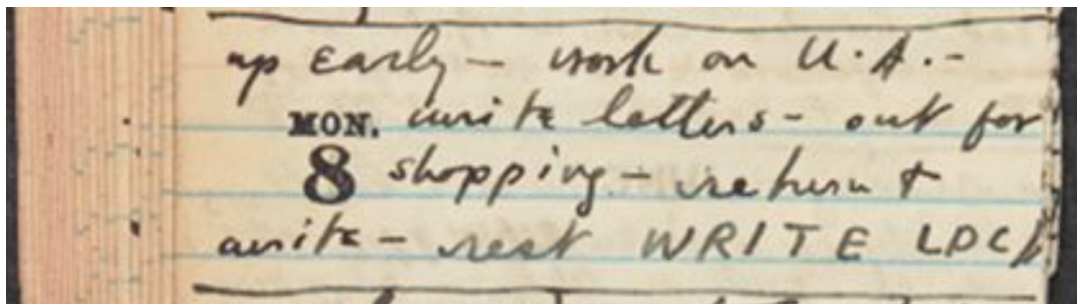 up early – work on U.A. –
MON. write letters – out for
8 shopping – return +
write – rest WRITE LDC